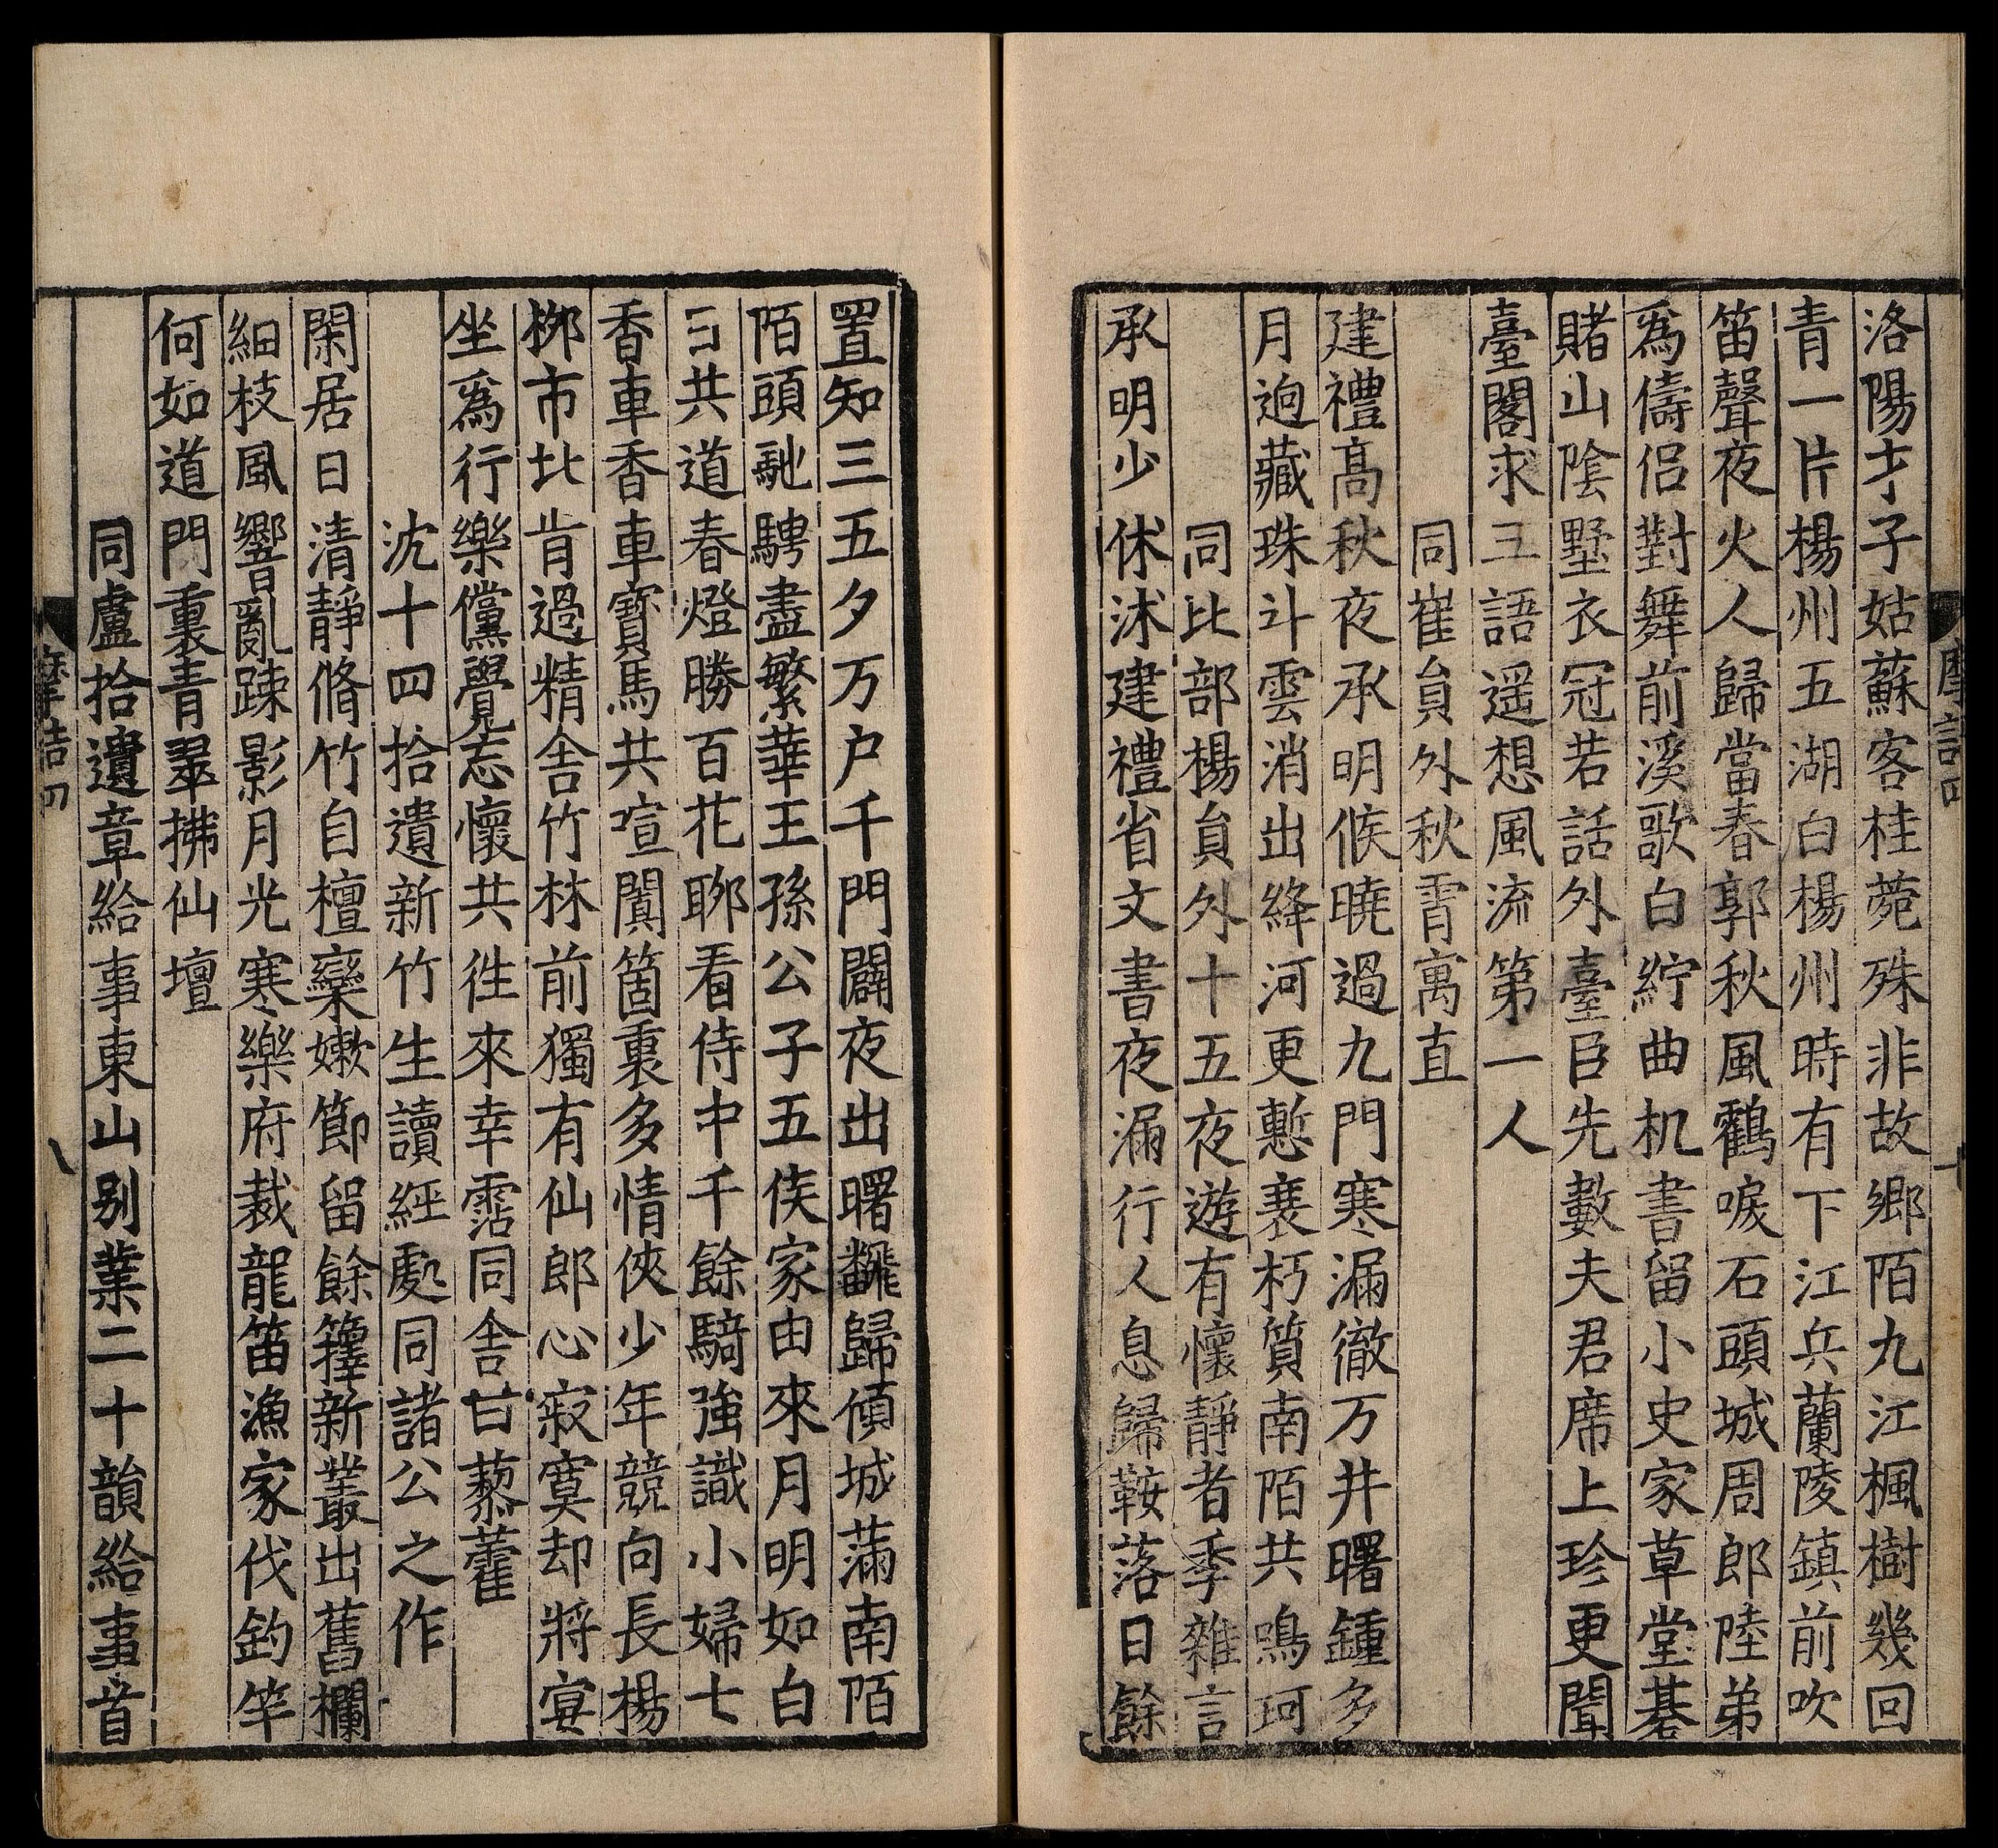 洛陽才子姑蘇客桂菀殊非故鄉陌九江楓樹幾回
青一片楊州五湖白楊州時有下江兵蘭陵鎮前吹
笛聲夜火人歸當春郭秋風鶴唳石頭城周郎陸弟
爲儔侶對舞前溪歌白紵曲机書留小史家草堂棊
賭山陰墅衣冠若話外臺臣先數夫君席上珍更聞
臺閣求三語遥想風流第一人
同崔貟外秋霄寓直
建禮髙秋夜承明候曉過九門寒漏徹万井曙鍾多
月逈藏珠斗雲消出絳河更慙衰朽質南陌共鳴珂
同比部楊貟外十五夜遊有懷靜者季雜言
承明少休沐建禮省文書夜漏行人息歸鞍落日餘
置知三五夕万户千門闢夜出曙飜歸傾城滿南陌
陌頭馳騁盡繁華王孫公子五侯家由來月明如白
日共道春燈勝百花聊看侍中千餘騎強識小婦七
香車香車寶馬共喧闐箇裏多情俠少年競向長楊
桺市北肯過精舎竹林前獨有仙郎心寂寞却將宴
坐爲行樂儻覺忘懷共徃來幸霑同舎甘藜藿
沈十四拾遺新竹生讀經處同諸公之作
閑居日清靜脩竹自檀欒嫰節留餘籜新叢出舊欄
細枝風響亂踈影月光寒樂府裁龍笛漁家伐釣竿
何如道門裏青翠拂仙壇
同盧拾遺韋給事東山别業二十韻給事首